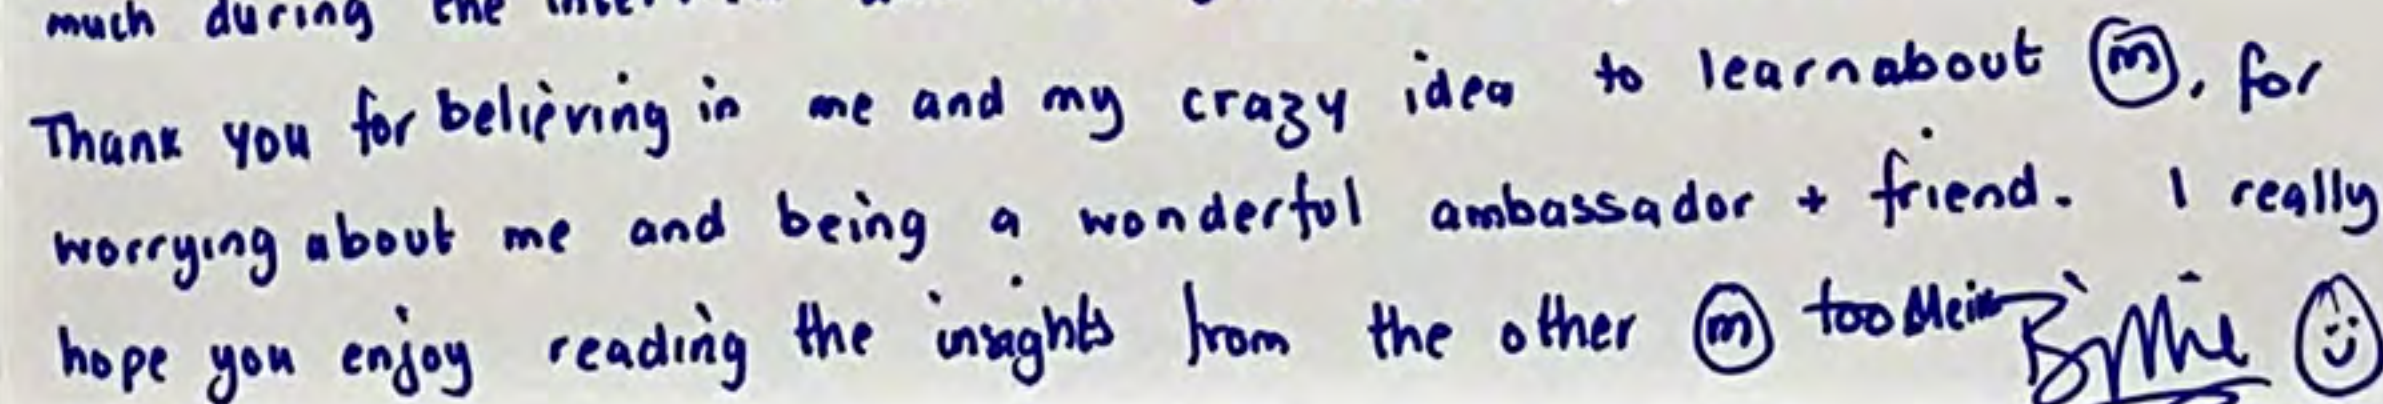 much during the
Thank you for believing in me and my crazy idea to learn about ⓜ, for
worrying about me and being a wonderful ambassador + friend. I really
hope you enjoy reading the insights from the other ⓜ too